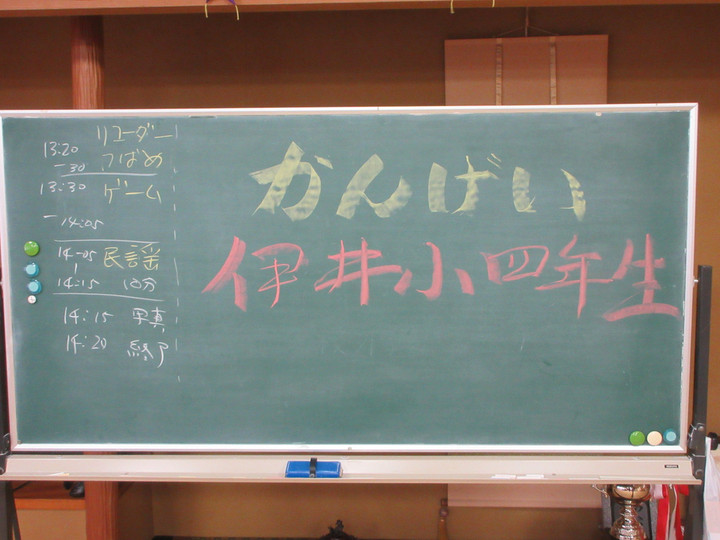 リコーダー
13:20 つばめ
-30
13:30 ゲーム
-14:05
14-05 民謡
14:15 10分
14:15 写真
14:20 終了
かんげい
伊井小四年生